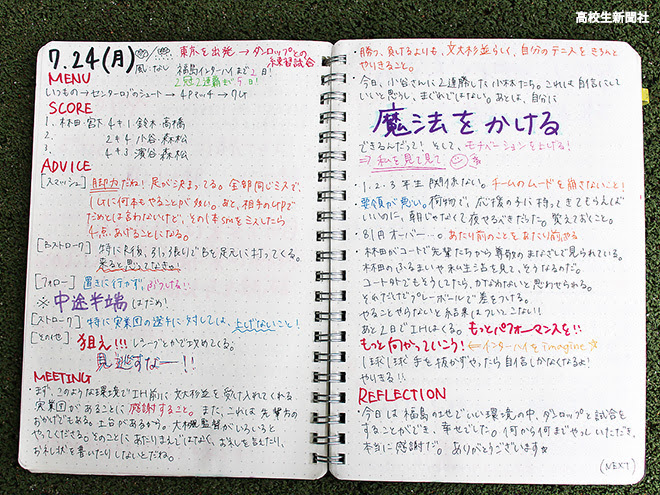 高校生新聞社
7.24(月) 東京を出発→ダンロップとの練習試合
風:なし 福島インターハイまで2日!
2冠2連覇まで9日!
MENU
いつもの→センターロブのシュート→4Pマッチ→7G
SCORE
1. 林田・宮下 4-1 鈴木・高橋
2. 2-4 小谷・森松
3. 4-3 濱谷・森松
ADVICE
[スマッシュ] 脚力だね! 足が決まってる。全部同じミスで、
1Gに何本もやることが多い。あと、相手のGPで
だめとは言わないけど、その1本smをミスしたら
4点あげることになる。
[Bストローク] 特にR後、引っ張りでBを足元に打ってくる。
来ると思ってなきゃ!
[フォロー] 置きに行かず、ぶつける!!
※中途半端はだめ!
[ストローク] 特に実業団の選手に対しては、上げないこと!
[その他] 狙え!!! レシーブとかで攻めてくる。
見逃すなー!!
MEETING
・まず、このような環境でIH前に文大杉並を受け入れてくれる
実業団があることに感謝すること。また、これは先輩方の
おかげでもある。土台があるから。監督がいろいろと
やってくださる。そのことにあたりまえではなく、お礼を言えたり、
お礼状を書いたりしないとだね。
・勝つ、負けるよりも、文大杉並らしく、自分のテニスをきちんと
やりきること。
・今日、小谷さんに2連勝した小林たち。これは自信にして
いいと思うし、まぐれではない。あとは、自分に
魔法をかける
できるんだって! そして、モチベーションを上げる!
⇒私を見て見て
・1.2.3年生関係ない。チームのムードを崩さないこと!
・要領が悪い。荷物で、応援の子に持ってきてもらえば
いいのに、朝じゃなくて夜やるべきだった。覚えておくこと。
・8:1円オーバー…。あたり前のことをあたり前にやる
・林田がコートで先輩たちから尊敬のまなざしで見られている。
林田のふるまいや私生活を見て、そうなるんだ。
コート外でもそうしてたら、かなわないと思わせられる。
それだけどプレーボールで差をつける。
やることやらないと結果はついてこない!!
・あと2日でIHはくる。もっとパフォーマンスを!!
もっと向かっていこう! ⇐インターハイをimagine☆
・1球1球手を抜かずやったら自信しかなくなるよ!
やりきる!!
REFLECTION
・今日は福島のとてもいい環境の中、ダンロップと試合を
することができ、幸せでした。何から何までやっていただき、
本当に感謝だ。ありがとうございます☆
(NEXT)